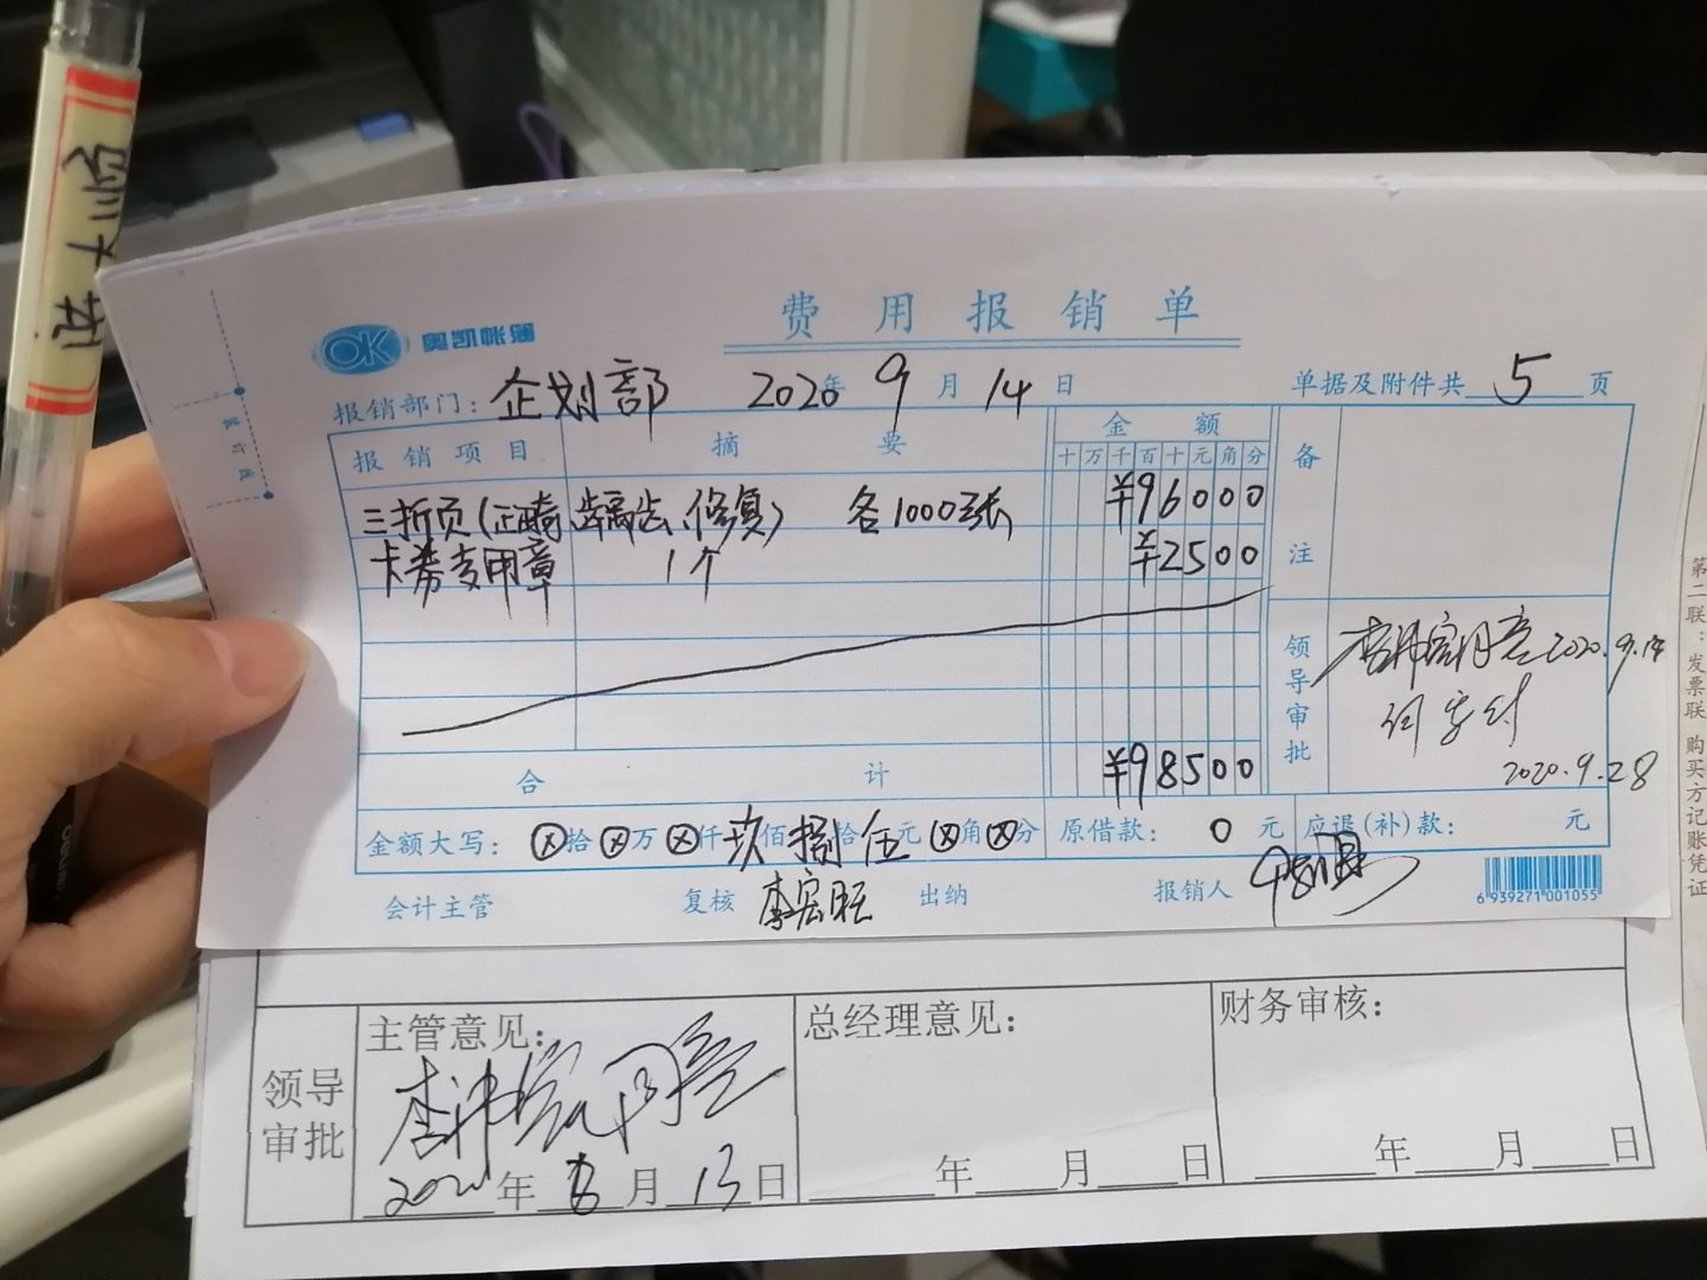 费用报销单
OK 奥凯帐簿
报销部门: 企划部 2020年 9月 14日 单据及附件共 5 页
报销项目 摘要 金额 备注
十万千百十元角分
三折页(正畸、龋齿、修复) 各1000张 ¥96000
卡券专用章 1个 ¥2500
合计 ¥98500
领导审批
2020.9.14
2020.9.28
金额大写: ⊗拾⊗万⊗仟玖佰捌拾伍元⊗角⊗分 原借款: 0 元 应退(补)款: 元
会计主管 复核 李宏旺 出纳 报销人
6 939271 001055
第二联:发票联 购买方记账凭证
装订线
领导审批
主管意见: 总经理意见: 财务审核:
2020年 8月 13日 年 月 日 年 月 日